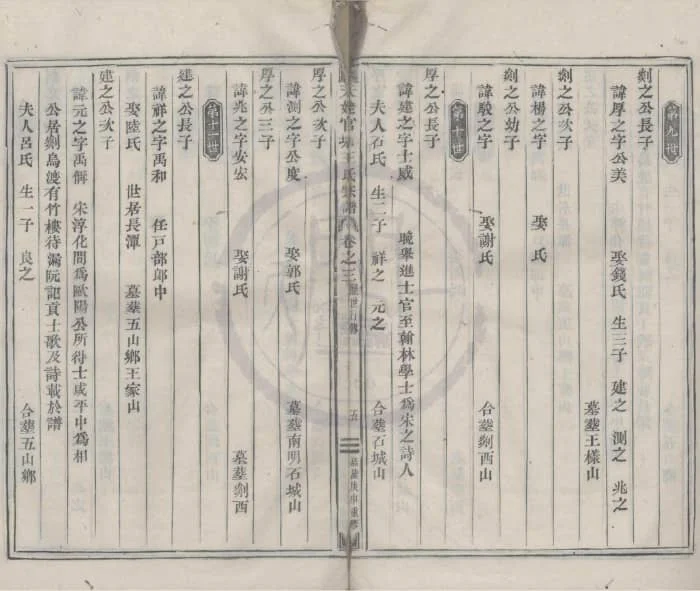 第九世
剡之公長子
諱厚之字公美 娶錢氏 生三子 建之 測之 兆之
墓墓王樣山
剡之公次子
諱楊之字 娶 氏
剡之公幼子
諱駿之字 娶謝氏 合墓剡西山
第十世
厚之公長子
諱建之字士威 晚舉進士官至翰林學士為宋之詩人
夫人石氏 生二子 祥之 元之 合墓石城山
天姥官塘王氏宗譜 卷之三 五
厚之公次子
諱測之字公度 娶郭氏 墓墓南明石城山
厚之公三子
諱兆之字安宏 娶謝氏 墓墓剡西
第十一世
建之公長子
諱祥之字禹和 任戸部郎中
娶陸氏 世居長潭 墓墓五山鄉王家山
建之公次子
諱元之字禹偁 宋淳化間為歐陽公所得士咸平中為相
公居剡烏渡有竹樓待漏阮記貢士歌及詩載於譜
夫人呂氏 生一子 良之 合墓五山鄉